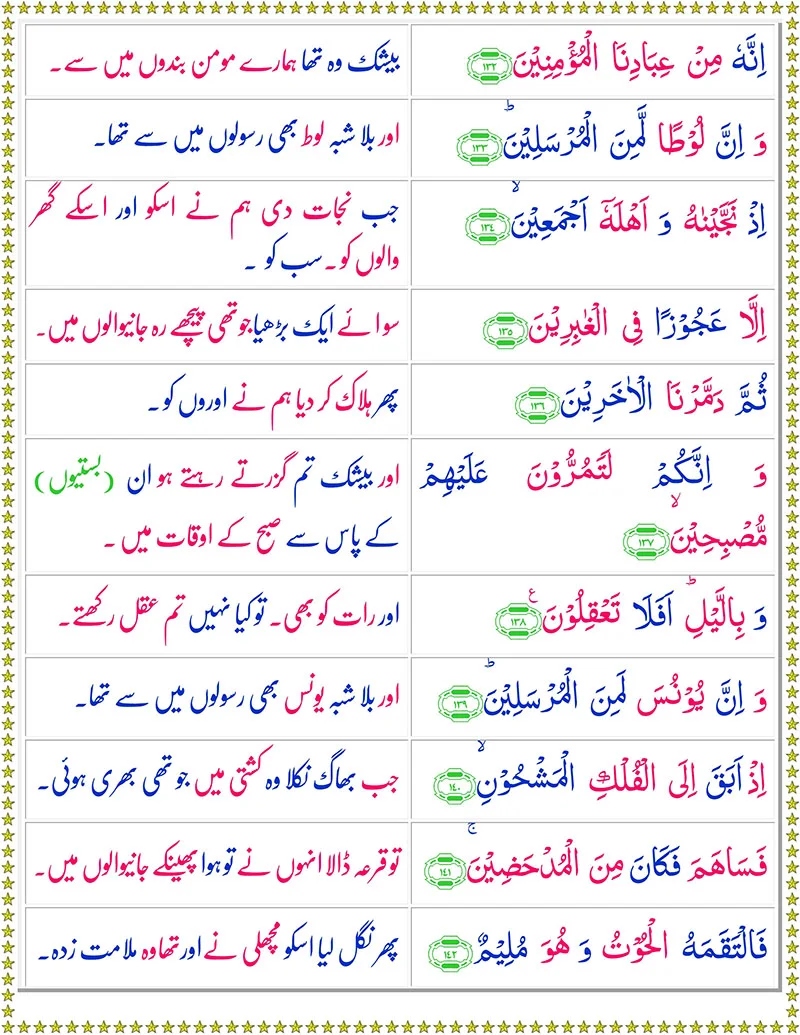 اِنَّهٗ مِنْ عِبَادِنَا الْمُؤْمِنِيْنَ ١٣٢
بیشک وہ تھا ہمارے مومن بندوں میں سے۔
وَ اِنَّ لُوْطًا لَّمِنَ الْمُرْسَلِيْنَؕ ١٣٣
اور بلا شبہ لوط بھی رسولوں میں سے تھا۔
اِذْ نَجَّيْنٰهُ وَ اَهْلَهٗۤ اَجْمَعِيْنَۙ ١٣٤
جب نجات دی ہم نے اسکو اور اسکے گھر
والوں کو۔ سب کو۔
اِلَّا عَجُوْزًا فِى الْغٰبِرِيْنَ ١٣٥
سوائے ایک بڑھیا جو تھی پیچھے رہ جانیوالوں میں۔
ثُمَّ دَمَّرْنَا الْاٰخَرِيْنَ ١٣٦
پھر ہلاک کر دیا ہم نے اوروں کو۔
وَ اِنَّكُمْ لَتَمُرُّوْنَ عَلَيْهِمْ
مُّصْبِحِيْنَۙ ١٣٧
اور بیشک تم گزرتے رہتے ہو ان (بستیوں)
کے پاس سے صبح کے اوقات میں۔
وَ بِالَّيْلِؕ اَفَلَا تَعْقِلُوْنَ ع ١٣٨
اور رات کو بھی۔ تو کیا نہیں تم عقل رکھتے۔
وَ اِنَّ يُوْنُسَ لَمِنَ الْمُرْسَلِيْنَؕ ١٣٩
اور بلا شبہ یونس بھی رسولوں میں سے تھا۔
اِذْ اَبَقَ اِلَى الْفُلْكِ الْمَشْحُوْنِۙ ١٤٠
جب بھاگ نکلا وہ کشتی میں جو تھی بھری ہوئی۔
فَسَاهَمَ فَكَانَ مِنَ الْمُدْحَضِيْنَۚ ١٤١
تو قرعہ ڈالا انہوں نے تو ہوا پھینکے جانیوالوں میں۔
فَالْتَقَمَهُ الْحُوْتُ وَ هُوَ مُلِيْمٌ ١٤٢
پھر نگل لیا اسکو مچھلی نے اور تھا وہ ملامت زدہ۔